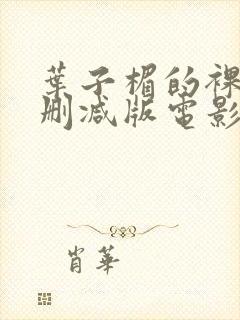 葉子楣的裸
刪減版電影
肖華